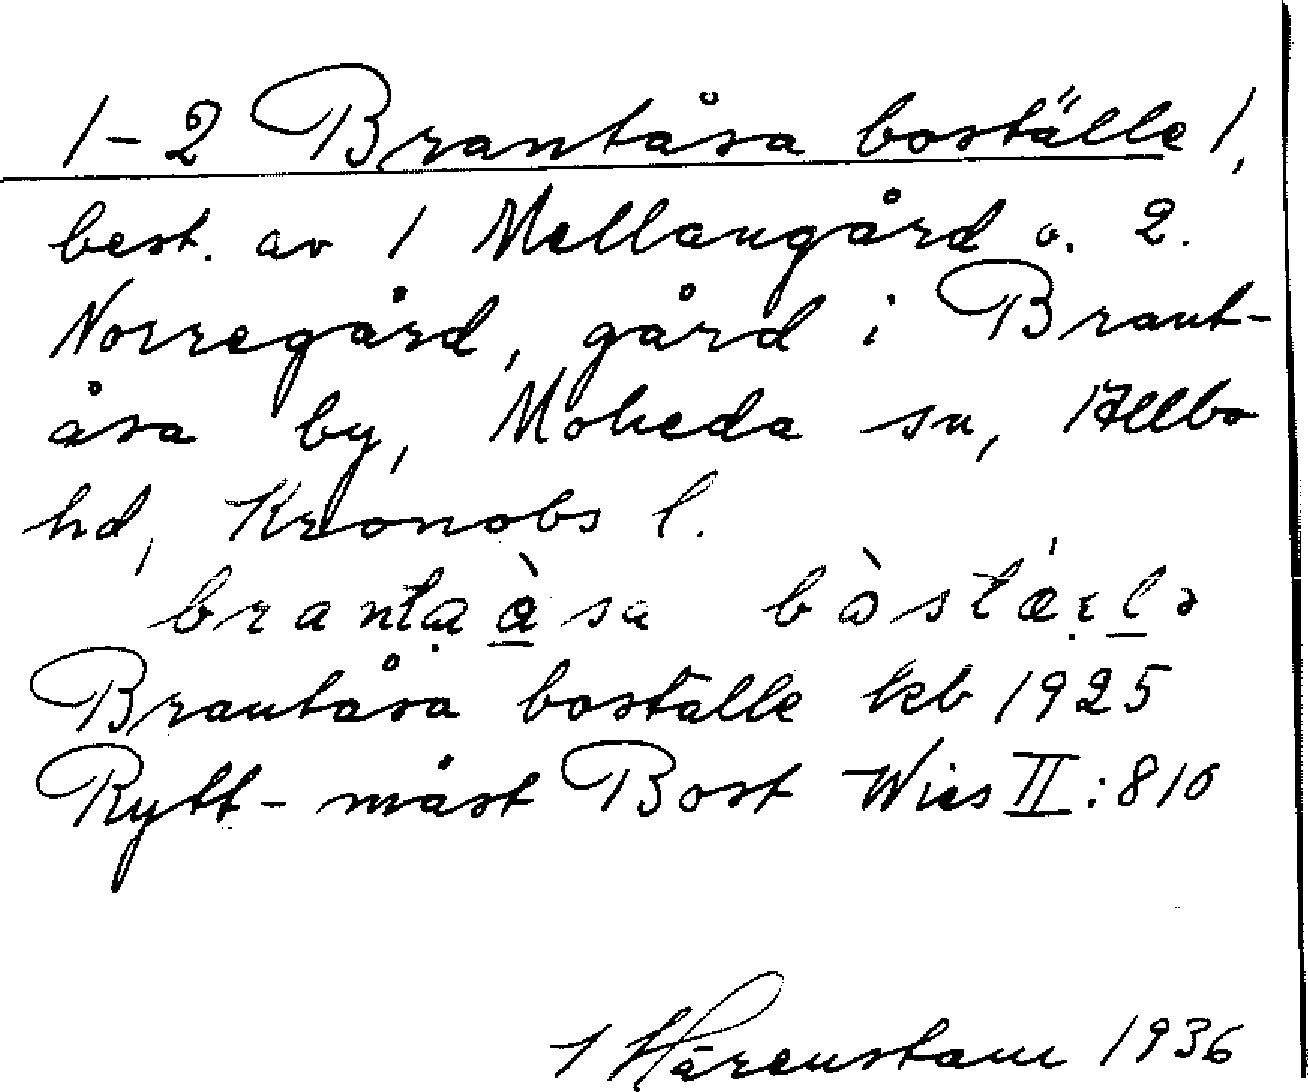 1-2 Brantåsa boställe 1,
best. av 1 Mellangård o. 2.
Norregård, gård i Brant-
åsa by, Moheda sn, Allbo
hd, Kronobs l.
brantaàsa bòstáełə
Brantåsa boställe kb 1925
Rytt-mäst Bost Wies II:810
Härenstam 1936